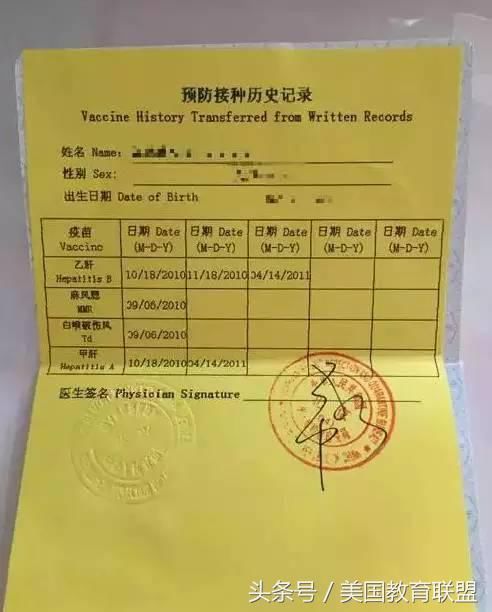 预防接种历史记录
Vaccine History Transferred from Written Records
姓名 Name:
性别 Sex:
出生日期 Date of Birth
疫苗 Vaccine 日期 Date (M-D-Y) 日期 Date (M-D-Y) 日期 Date (M-D-Y) 日期 Date (M-D-Y) 日期 Date (M-D-Y)
乙肝 Hepatitis B 10/18/2010 11/18/2010 04/14/2011
麻风腮 MMR 09/06/2010
白喉破伤风 Td 09/06/2010
甲肝 Hepatitis A 10/18/2010 04/14/2011
医生签名 Physician Signature
头条号 / 美国教育联盟